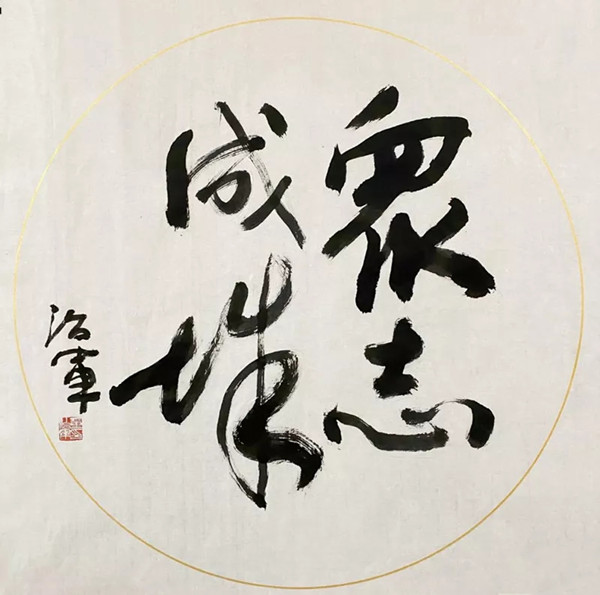 眾志
成城
治軍